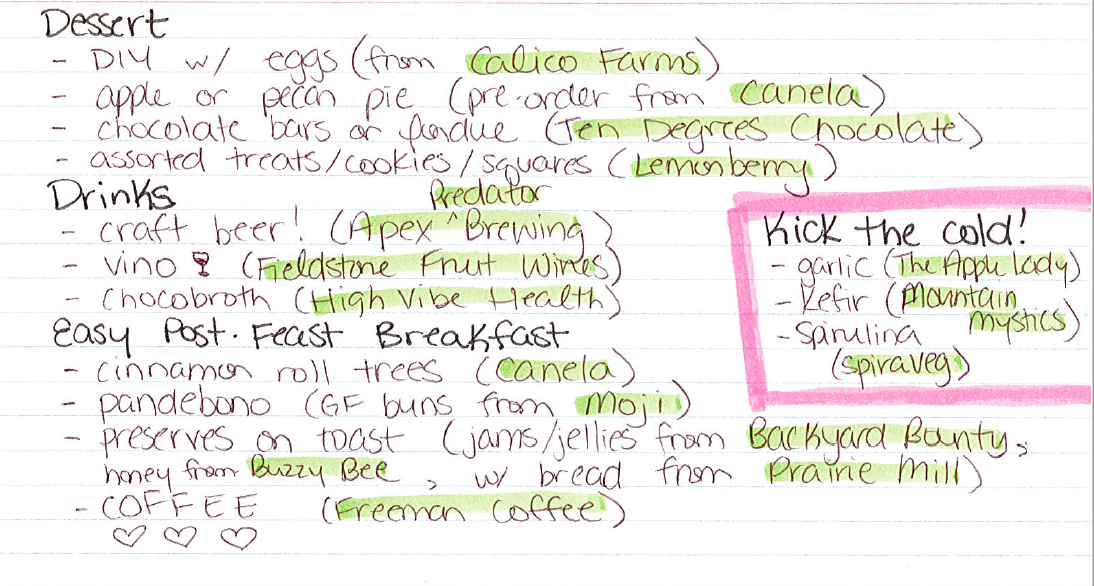 Dessert
- DIY w/ eggs (from Calico Farms)
- apple or pecan pie (pre-order from Canela)
- chocolate bars or fondue (Ten Degrees Chocolate)
- assorted treats/cookies/squares (Lemonberry)
Drinks
- craft beer! (Apex ^Predator Brewing)
- vino 🍷 (Fieldstone Fruit Wines)
- chocobroth (High Vibe Health)
Easy Post-Feast Breakfast
- cinnamon roll trees (Canela)
- pandebono (GF buns from Moji)
- preserves on toast (jams/jellies from Backyard Bounty,
honey from Buzzy Bee, w/ bread from Prairie Mill)
- COFFEE (Freeman Coffee)
♡ ♡ ♡
Kick the cold!
- garlic (The Apple Lady)
- Kefir (Mountain
Mystics)
- Spirulina
(Spiraveg)